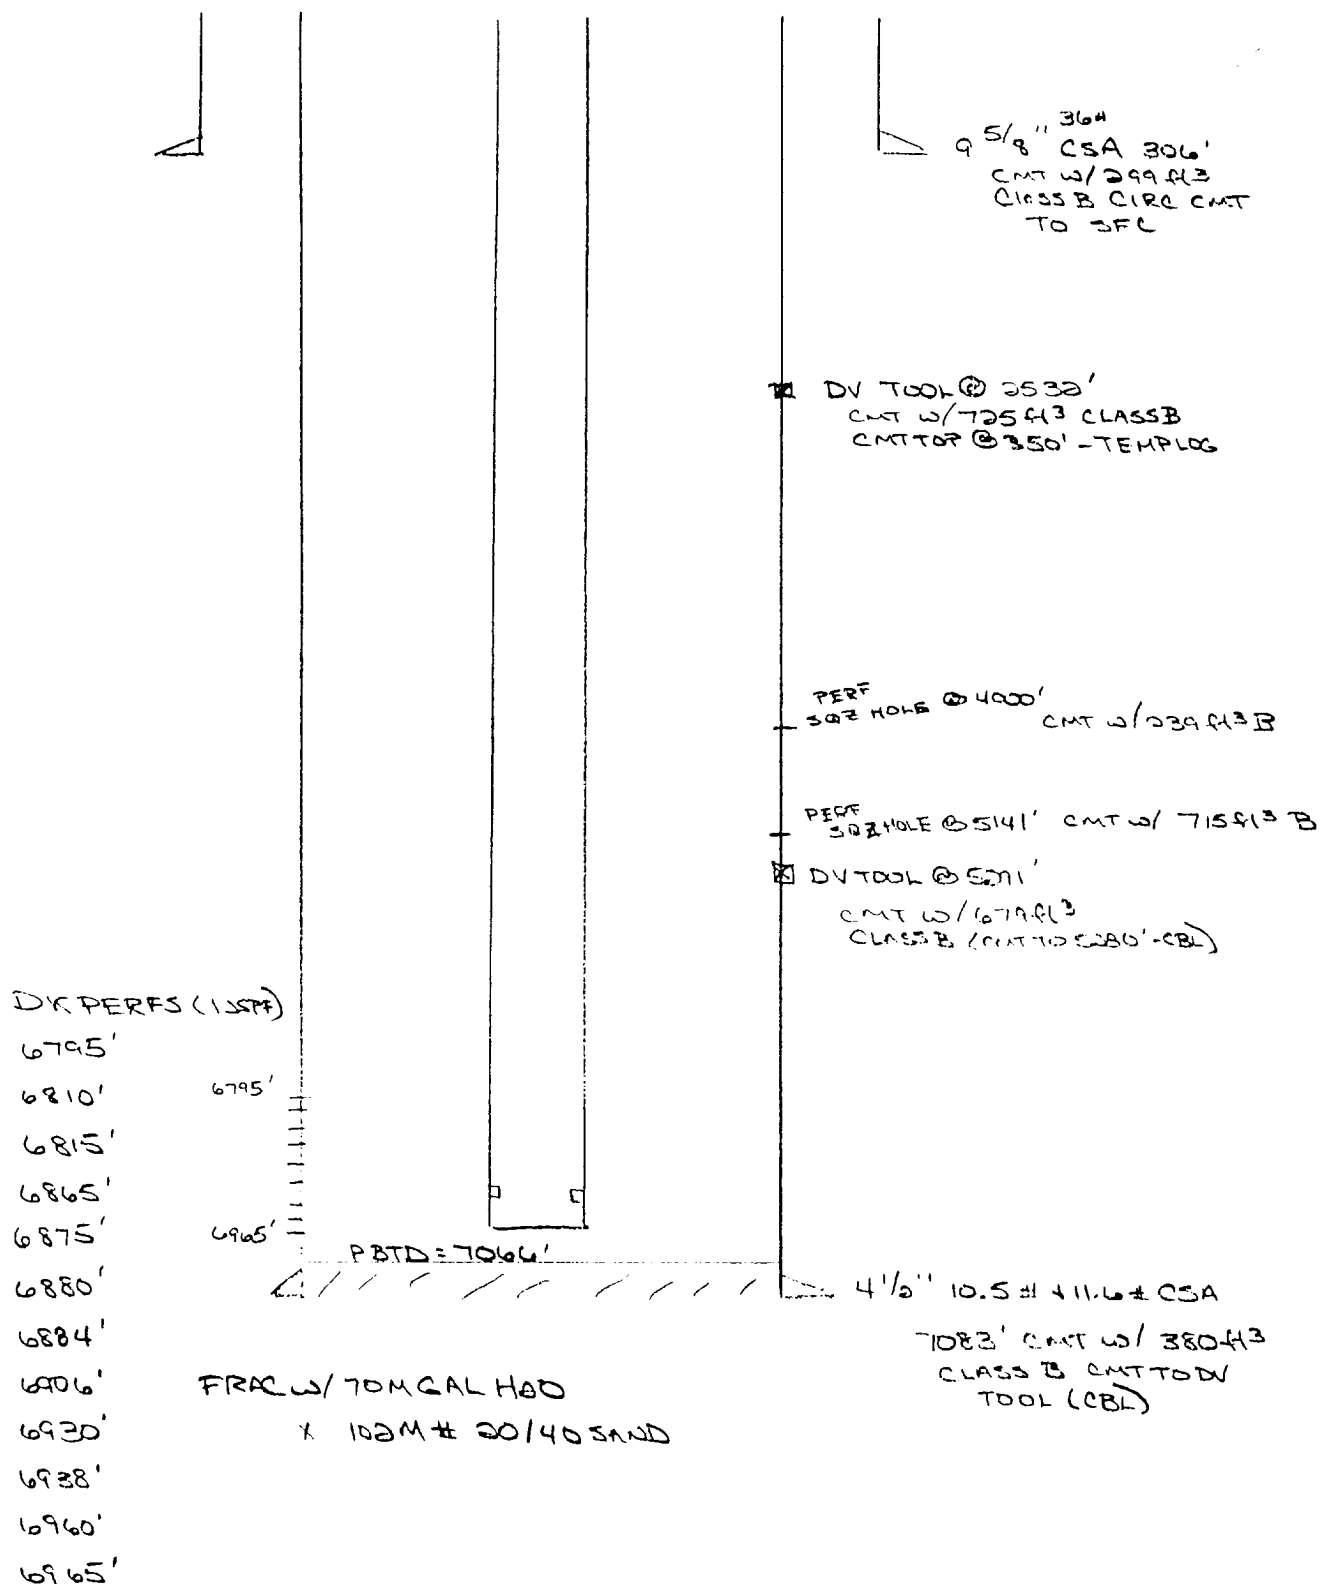 9 5/8" 36# CSA 306'
CMT W/299 ft3
CLASS B CIRC CMT
TO SFC
DV TOOL @ 2532'
CMT W/725 ft3 CLASS B
CMT TOP @ 350' - TEMP LOG
PERF
SQZ HOLE @ 4000'
CMT W/239 ft3 B
PERF
SQZ HOLE @ 5141' CMT W/ 715 ft3 B
DV TOOL @
CMT W/679 ft3
CLASS B (CMT TO 5280'-CBL)
DK PERFS (1 JSPF)
6795'
6810'
6815'
6865'
6875'
6880'
6884'
6906'
6930'
6938'
6960'
6965'
6795'
6965'
PBTD = 7066'
4 1/2" 10.5# + 11.6# CSA
7083' CMT W/ 380 ft3
CLASS B CMT TO DV
TOOL (CBL)
FRAC W/ 70M GAL H2O
X 102M # 20/40 SAND